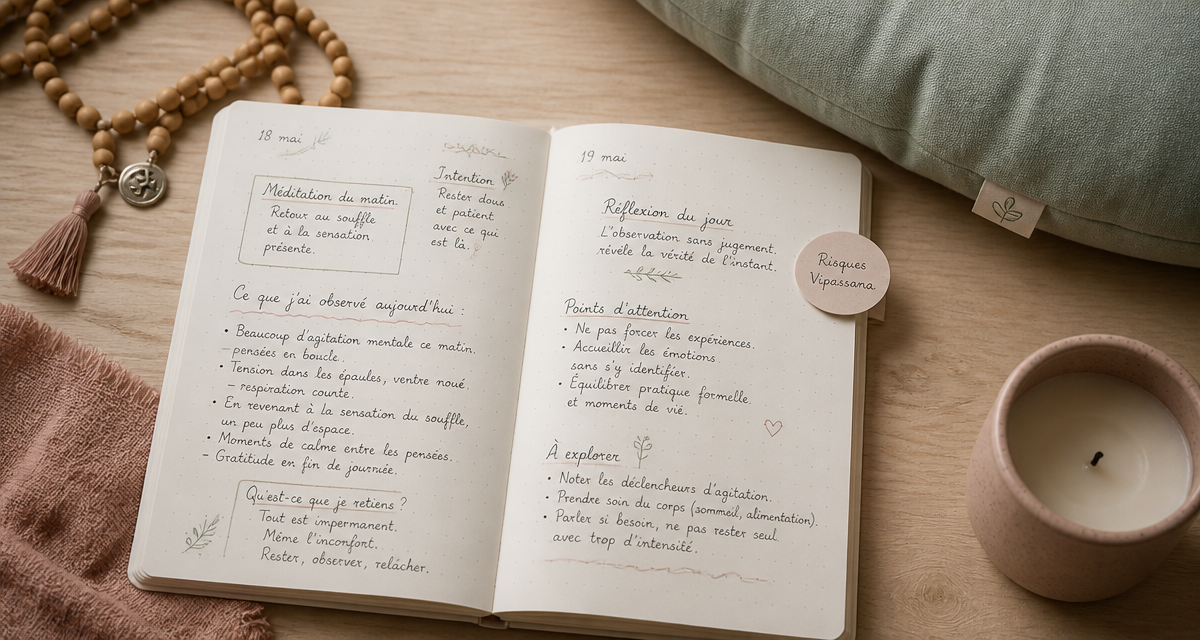 18 mai
Méditation du matin.
Retour au souffle
et à la sensation
présente.
Intention
Rester doux
et patient
avec ce qui
est là.
Ce que j'ai observé aujourd'hui :
• Beaucoup d'agitation mentale ce matin.
– pensées en boucle.
• Tension dans les épaules, ventre noué.
– respiration courte.
• En revenant à la sensation du souffle,
un peu plus d'espace.
• Moments de calme entre les pensées.
– Gratitude en fin de journée.
Qu'est-ce que je retiens ?
Tout est impermanent.
Même l'inconfort.
Rester, observer, relâcher.
19 mai
Réflexion du jour
L'observation sans jugement.
révèle la vérité de l'instant.
Points d'attention
• Ne pas forcer les expériences.
• Accueillir les émotions.
sans s'y identifier.
• Équilibrer pratique formelle.
et moments de vie.
À explorer
• Noter les déclencheurs d'agitation.
• Prendre soin du corps (sommeil, alimentation).
• Parler si besoin, ne pas rester seul
avec trop d'intensité.
Risques
Vipassana